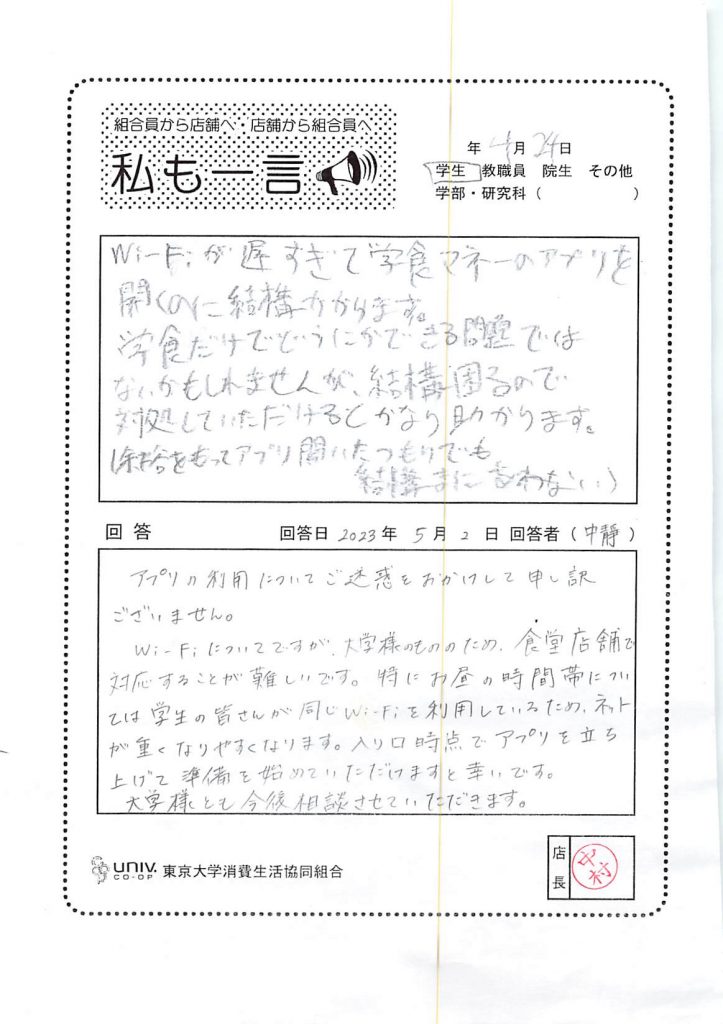 組合員から店舗へ・店舗から組合員へ
私も一言
年 4月 24日
学生 教職員 院生 その他
学部・研究科（ ）
Wi-Fiが遅すぎて学食マネーのアプリを
開くのに結構かかります。
学食だけでどうにかできる問題では
ないかもしれませんが、結構困るので
対処していただけるとかなり助かります。
(余裕をもってアプリ開いたつもりでも
結構まに合わない)
回答 回答日 2023年 5月 2日 回答者（中静）
アプリの利用についてご迷惑をおかけして申し訳
ございません。
Wi-Fiについてですが、大学様のもののため、食堂店舗で
対応することが難しいです。特にお昼の時間帯につい
ては学生の皆さんが同じWi-Fiを利用しているため、ネット
が重くなりやすくなります。入り口時点でアプリを立ち
上げて準備を始めていただけますと幸いです。
大学様とも今後相談させていただきます。
UNIV. CO-OP 東京大学消費生活協同組合
店長 中村